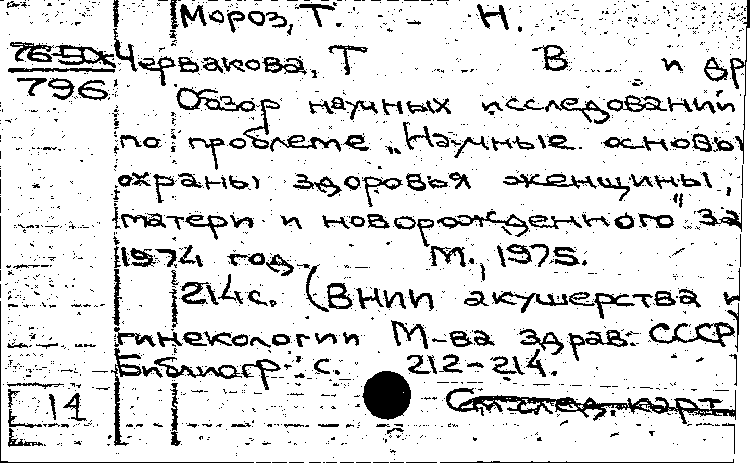 Мороз, Т. - Н.
76-50к Червакова, Т В и др
796
Обзор научных исследований
по проблеме „Научные основы
охраны здоровья женщины,
матери и новорожденного" за
1974 год. М., 1975.
214с. (ВНИИ акушерства и
гинекологии М-ва здрав. СССР
Библиогр.: с. 212-214.
14 См. след. карт.